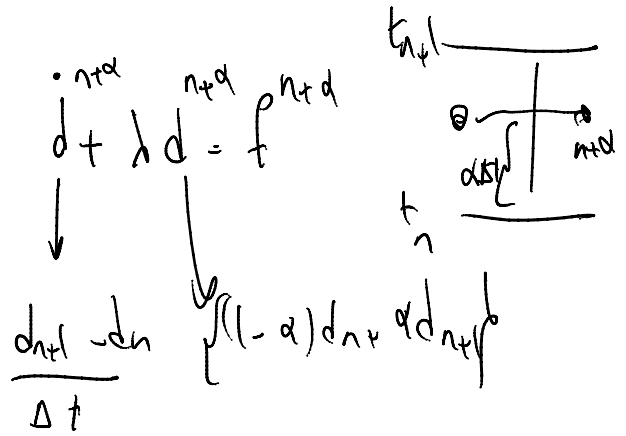 t_{n+1}
\dot{d}^{n+α} + λ d^{n+α} = f^{n+α}
n+α
αΔt
t_n
\frac{d_{n+1} - d_n}{Δt} {(1-α)d_n + αd_{n+1}}